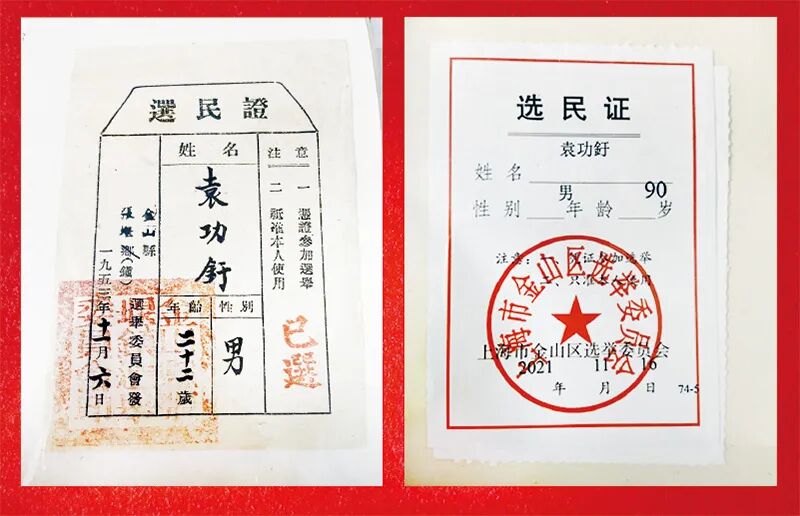 選民證
注意
一 憑證參加選舉
二 祇准本人使用
已選
姓名
袁功釪
性別
男
年齡
二十二歲
金山縣
張堰鄉(鎮)
選舉委員會發
一九五三年十一月六日
选民证
袁功釪
姓名
男 90
性别 年龄 岁
注意：一、凭证参加选举
二、只准本人使用
上海市金山区选举委员会
上海市金山区选举委员会
2021 11 16
年 月 日 74-5